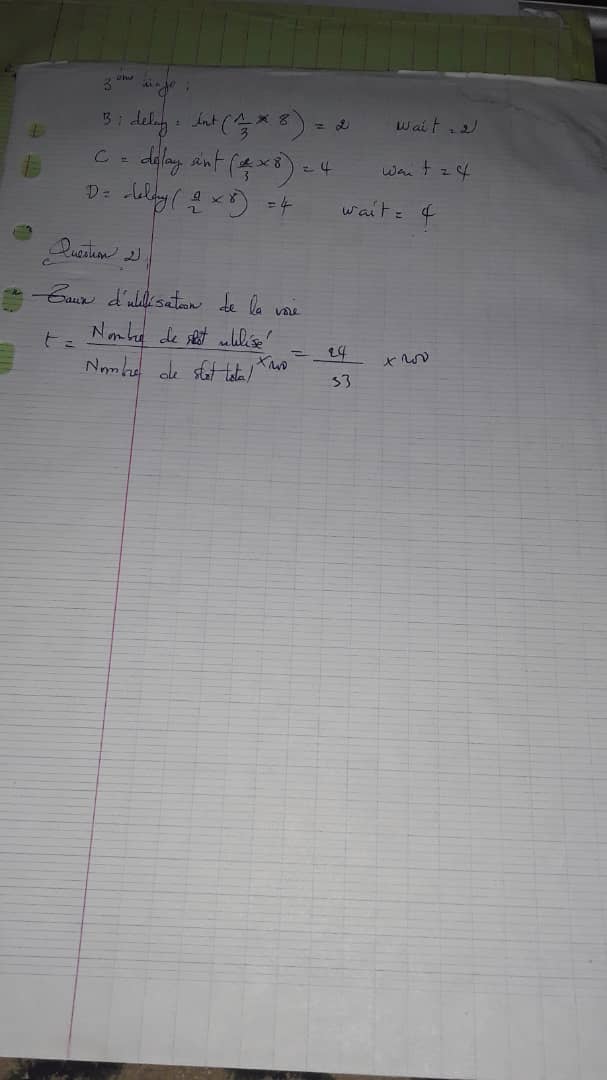 3ème tirage :
B : delay = int (1/3 * 8) = 2 wait = 2
C = delay int (2/3 x 8) = 4 wait = 4
D = delay ( 1/2 x 8) = 4 wait = 4
Question 2)
Taux d'utilisation de la voie
t = Nombre de slot utilisé / Nombre de slot total x100 = 24 / 33 x 100